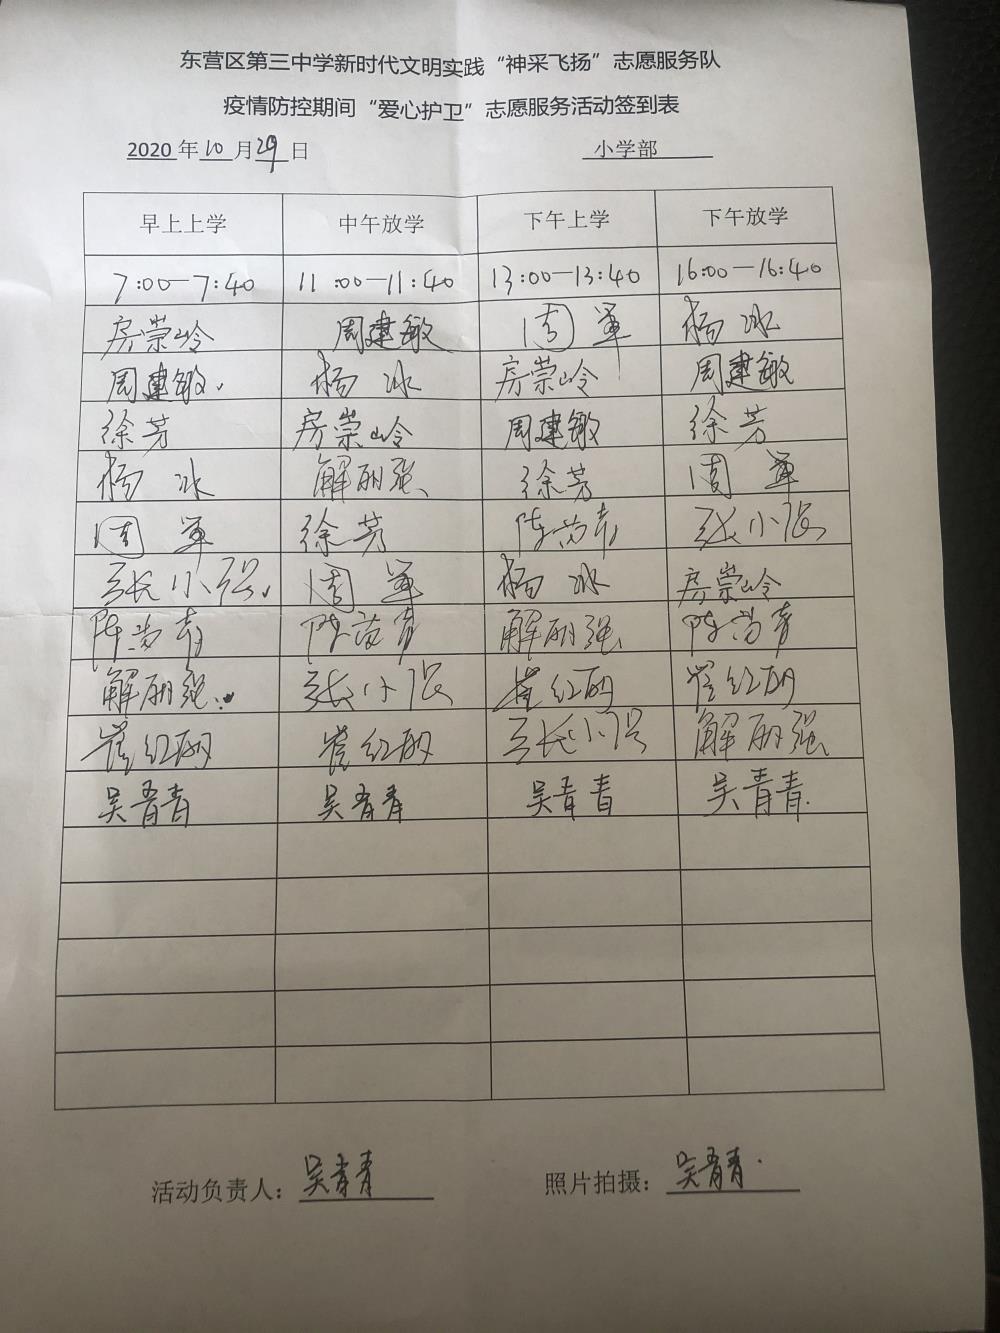 东营区第三中学新时代文明实践“神采飞扬”志愿服务队
疫情防控期间“爱心护卫”志愿服务活动签到表
2020年10月29日 小学部
早上上学 中午放学 下午上学 下午放学
7:00—7:40 11:00—11:40 13:00—13:40 16:00—16:40
房崇岭 周建敏 周军 杨冰
周建敏 杨冰 房崇岭 周建敏
徐芳 房崇岭 周建敏 徐芳
杨冰 解丽强 徐芳 周军
周军 徐芳 陈苗青 张小强
张小强 周军 杨冰 房崇岭
陈苗青 陈苗青 解丽强 陈苗青
解丽强 张小强 崔红丽 崔红丽
崔红丽 崔红丽 张小强 解丽强
吴青青 吴青青 吴青青 吴青青
活动负责人：吴青青 照片拍摄：吴青青